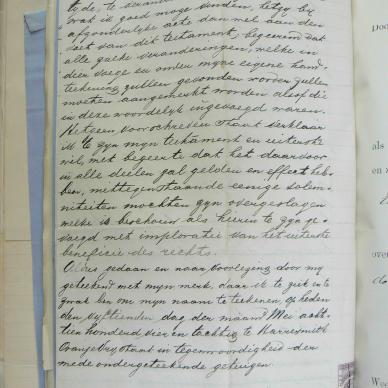 te de, te
wat ik goed mogt vinden, hetzy by
afzonderlyke acte dan wel aan den
voet van dit testament, begeerende dat
alle zulke veranderingen, welke in
dier voege en onder myne eigene hand-
teekening zullen gevonden worden zullen
moeten aangemerkt worden alsof die
in deze woordelyk ingevoegd waren.
Hetgeen voorschreven staat verklaar
ik te zyn myn testament en uiterste
wil, met begeerte dat het daarvoor
in alle deelen zal gelden en effect heb-
ben, niettegenstaande eenige solem-
niteiten mochten zyn overgeslagen
welke ik beschouw als hierin te zyn ge-
voegd met imploratie van het uiterste
beneficie des rechts.
Aldus gedaan en na voorlezing door my
geteekend met myn merk, daar ik te ziek en te
zwak ben om myn naam te teekenen, op heden
den vyftienden dag der maand Mei acht-
tien honderd vier en tachtig te Harrismith
Oranjevrystaat in tegenwoordigheid der
mede ondergeteekende getuigen
Doo
als
en
over
Wee